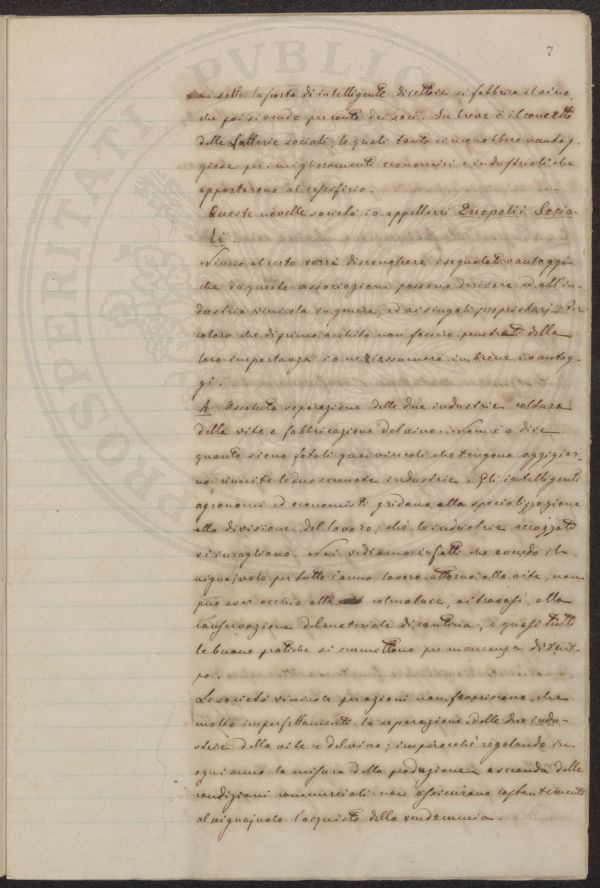 7
sotto la scorta di intelligente direttore si fabbrica il vino
che poi si vende per conto dei soci. In breve è il concetto
delle Latterie sociali, le quali tanto si riconobbero vantag-
giose pei miglioramenti economici e industriali che
apportarono al caseificio.
Queste novelle società io appellerei Enopolii Socia-
li.
Niuno al certo vorrà disconoscere i segnalati vantaggi
che da queste associazioni possono derivare ed all'in-
dustria vinicola in genere, ed ai singoli proprietarj. Per
coloro che di primo acchito non fossero penetrati della
loro importanza io ne riassumerò in breve i vantag-
gi.
A Assoluta separazione delle due industrie coltura
della vite e fabbricazione del vino. Non è a dire
quanto sieno fatali quei vincoli che tengono oggigior-
no riunite le due accennate industrie. Gli intelligenti
agronomi ed economisti gridano alla specializzazione
alla divisione del lavoro, ché le industrie accozzate
si incagliano. Noi vediamo infatti che avendo il
vignajuolo per tutto l'anno lavoro attorno alla vite, non
può aver occhio alle colmature, ai travasi, alla
conservazione del materiale di cantina, e quasi tutte
le buone pratiche si ommettono per mancanza di tem-
po.
Le società vinicole per azioni non forniscono che
molto imperfettamente la separazione delle due indu-
strie della vite e del vino; imperocché regolando in
ogni anno la misura della produzione a seconda delle
condizioni commerciali non assicurano costantemente
al vignajuolo l'acquisto della vendemmia.
PROSPERITATI PVBLIC